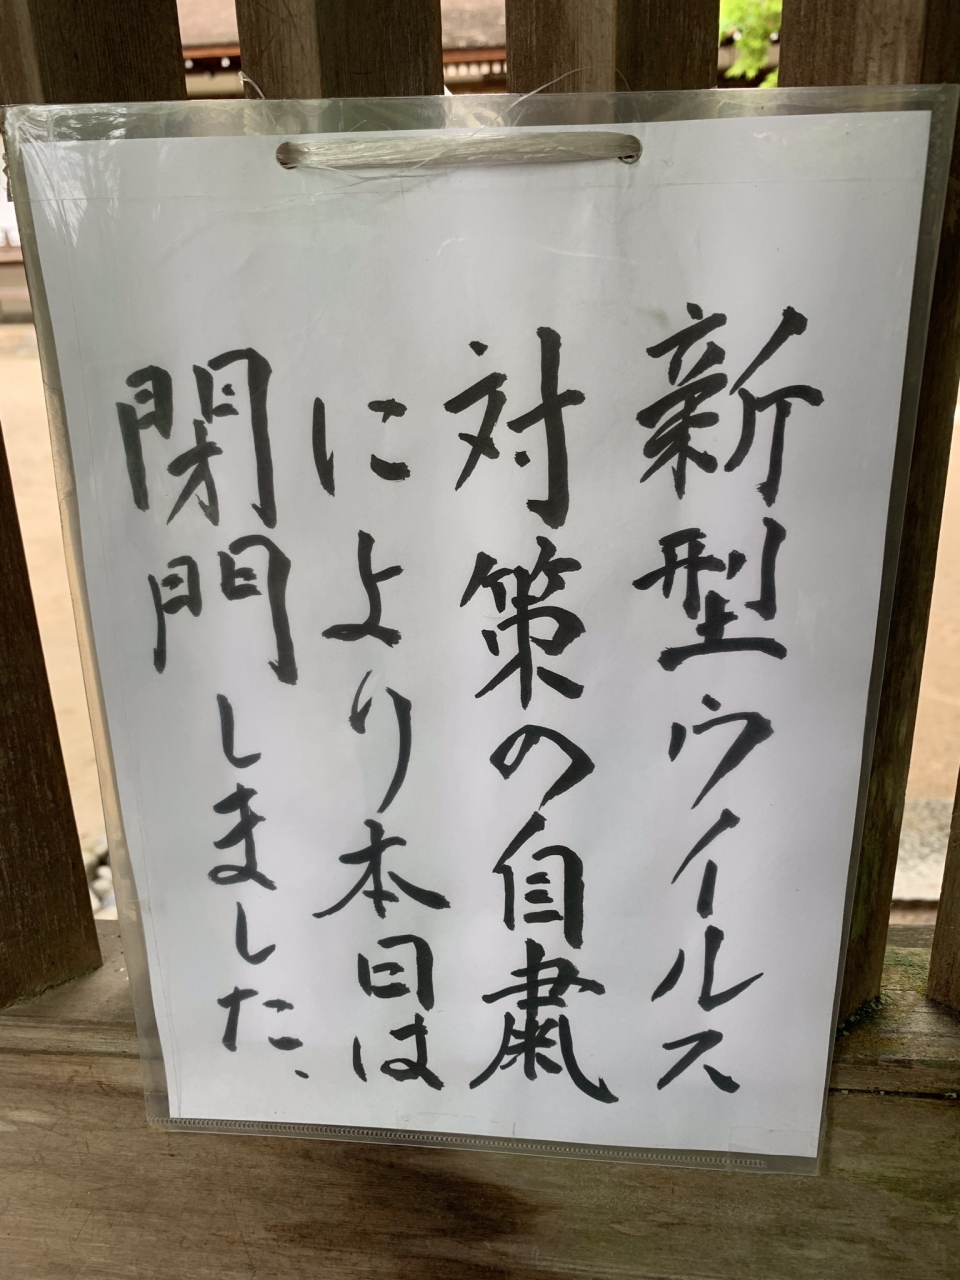 新型ウイルス
対策の自粛
により本日は
閉門しました、